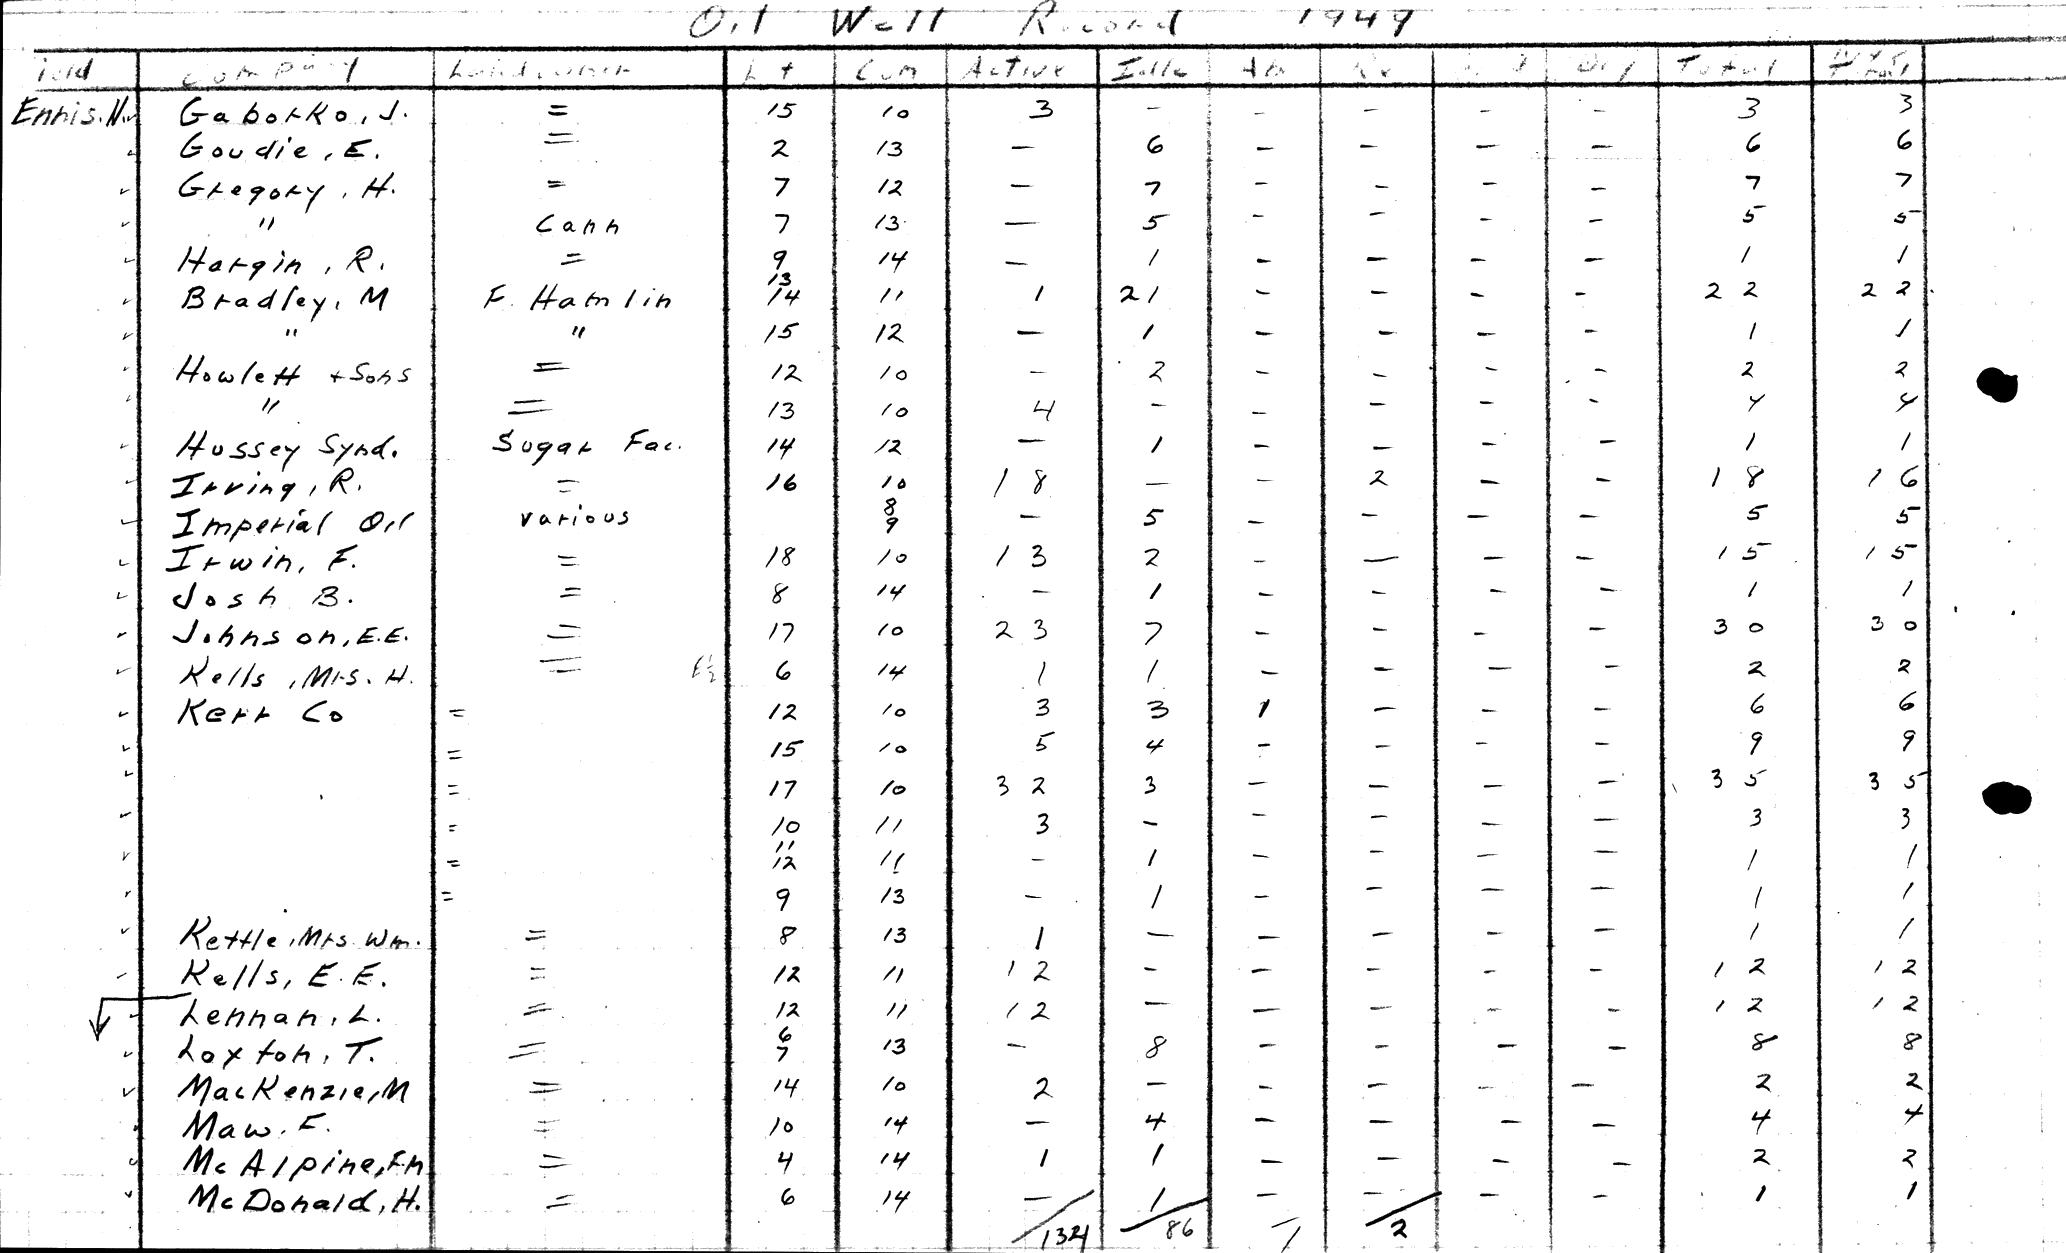 Oil Well Record 1949
Field Company Landowner Lt. Con Active Idle Ab Re Dry Total
Ennis. N. Gaborko, J. = 15 10 3 - - - - - 3 3
Goudie, E. = 2 13 - 6 - - - - 6 6
Gregory, H. = 7 12 - 7 - - - - 7 7
" Cann 7 13 - 5 - - - - 5 5
Hargin, R. = 9 14 - 1 - - - - 1 1
Bradley, M F. Hamlin 13 14 11 1 21 - - - - 22 22
" " 15 12 - 1 - - - - 1 1
Howlett + Sons = 12 10 - 2 - - - - 2 2
" = 13 10 4 - - - - - 4 4
Hussey Synd. Sugar Fac. 14 12 - 1 - - - - 1 1
Irving, R. = 16 10 18 - - 2 - - 18 16
Imperial Oil various 8 9 - 5 - - - - 5 5
Irwin, F. = 18 10 13 2 - - - - 15 15
Josh B. = 8 14 - 1 - - - - 1 1
Johnson, E.E. = 17 10 23 7 - - - - 30 30
Kells, Mrs. H. = E½ 6 14 1 1 - - - - 2 2
Kerr Co = 12 10 3 3 1 - - - 6 6
= 15 10 5 4 - - - - 9 9
= 17 10 32 3 - - - - 35 35
= 10 11 3 - - - - - 3 3
= 11 12 11 - 1 - - - - 1 1
= 9 13 - 1 - - - - 1 1
Kettle, Mrs Wm. = 8 13 1 - - - - - 1 1
Kells, E.E. = 12 11 12 - - - - - 12 12
Lennan, L. = 12 11 12 - - - - - 12 12
Loxton, T. = 6 7 13 - 8 - - - - 8 8
MacKenzie, M = 14 10 2 - - - - - 2 2
Maw. F. = 10 14 - 4 - - - - 4 4
McAlpine, Fm = 4 14 1 1 - - - - 2 2
McDonald, H. = 6 14 - 1 - - - - 1 1
134 86 1 2